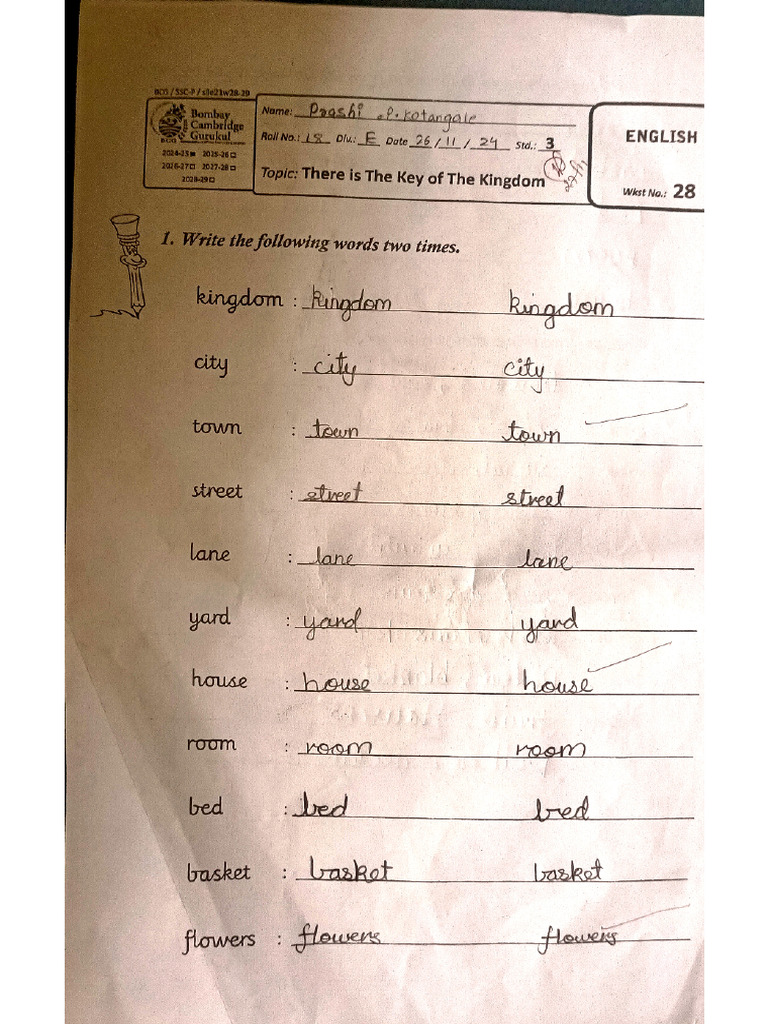 BCG / SSC-P / s3e21w28-29
Bombay Cambridge Gurukul
BCG
2024-25 2025-26
2026-27 2027-28
2028-29
Name: Prashi .P. Kotangale
Roll No.: 18 Div.: E Date 26 / 11 / 24 Std.: 3
Topic: There is The Key of The Kingdom
ENGLISH
Wkst No.: 28
1. Write the following words two times.
kingdom : kingdom kingdom
city : city city
town : town town
street : street street
lane : lane lane
yard : yard yard
house : house house
room : room room
bed : bed bed
basket : basket basket
flowers : flowers flowers